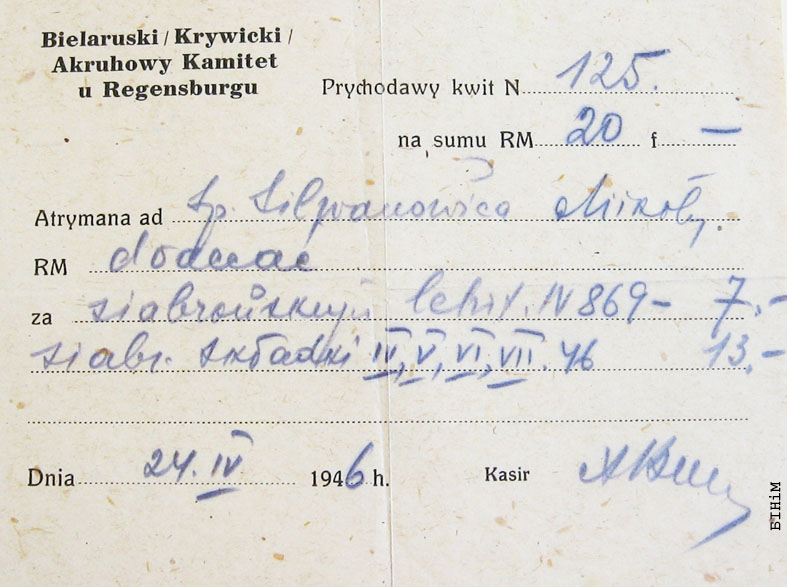 Bielaruski / Krywicki /
Akruhowy Kamitet
u Regensburgu
Prychodawy kwit N 125.
na sumu RM 20 f —
Atrymana ad Sp. Silwanowiča Mikoły
RM dodać
za siabroŭskuju lehit. N 869 – 7.-
siabr. składki IV, V, VI, VII. 46 13.-
Dnia 24. IV 1946 h. Kasir
БІНіМ